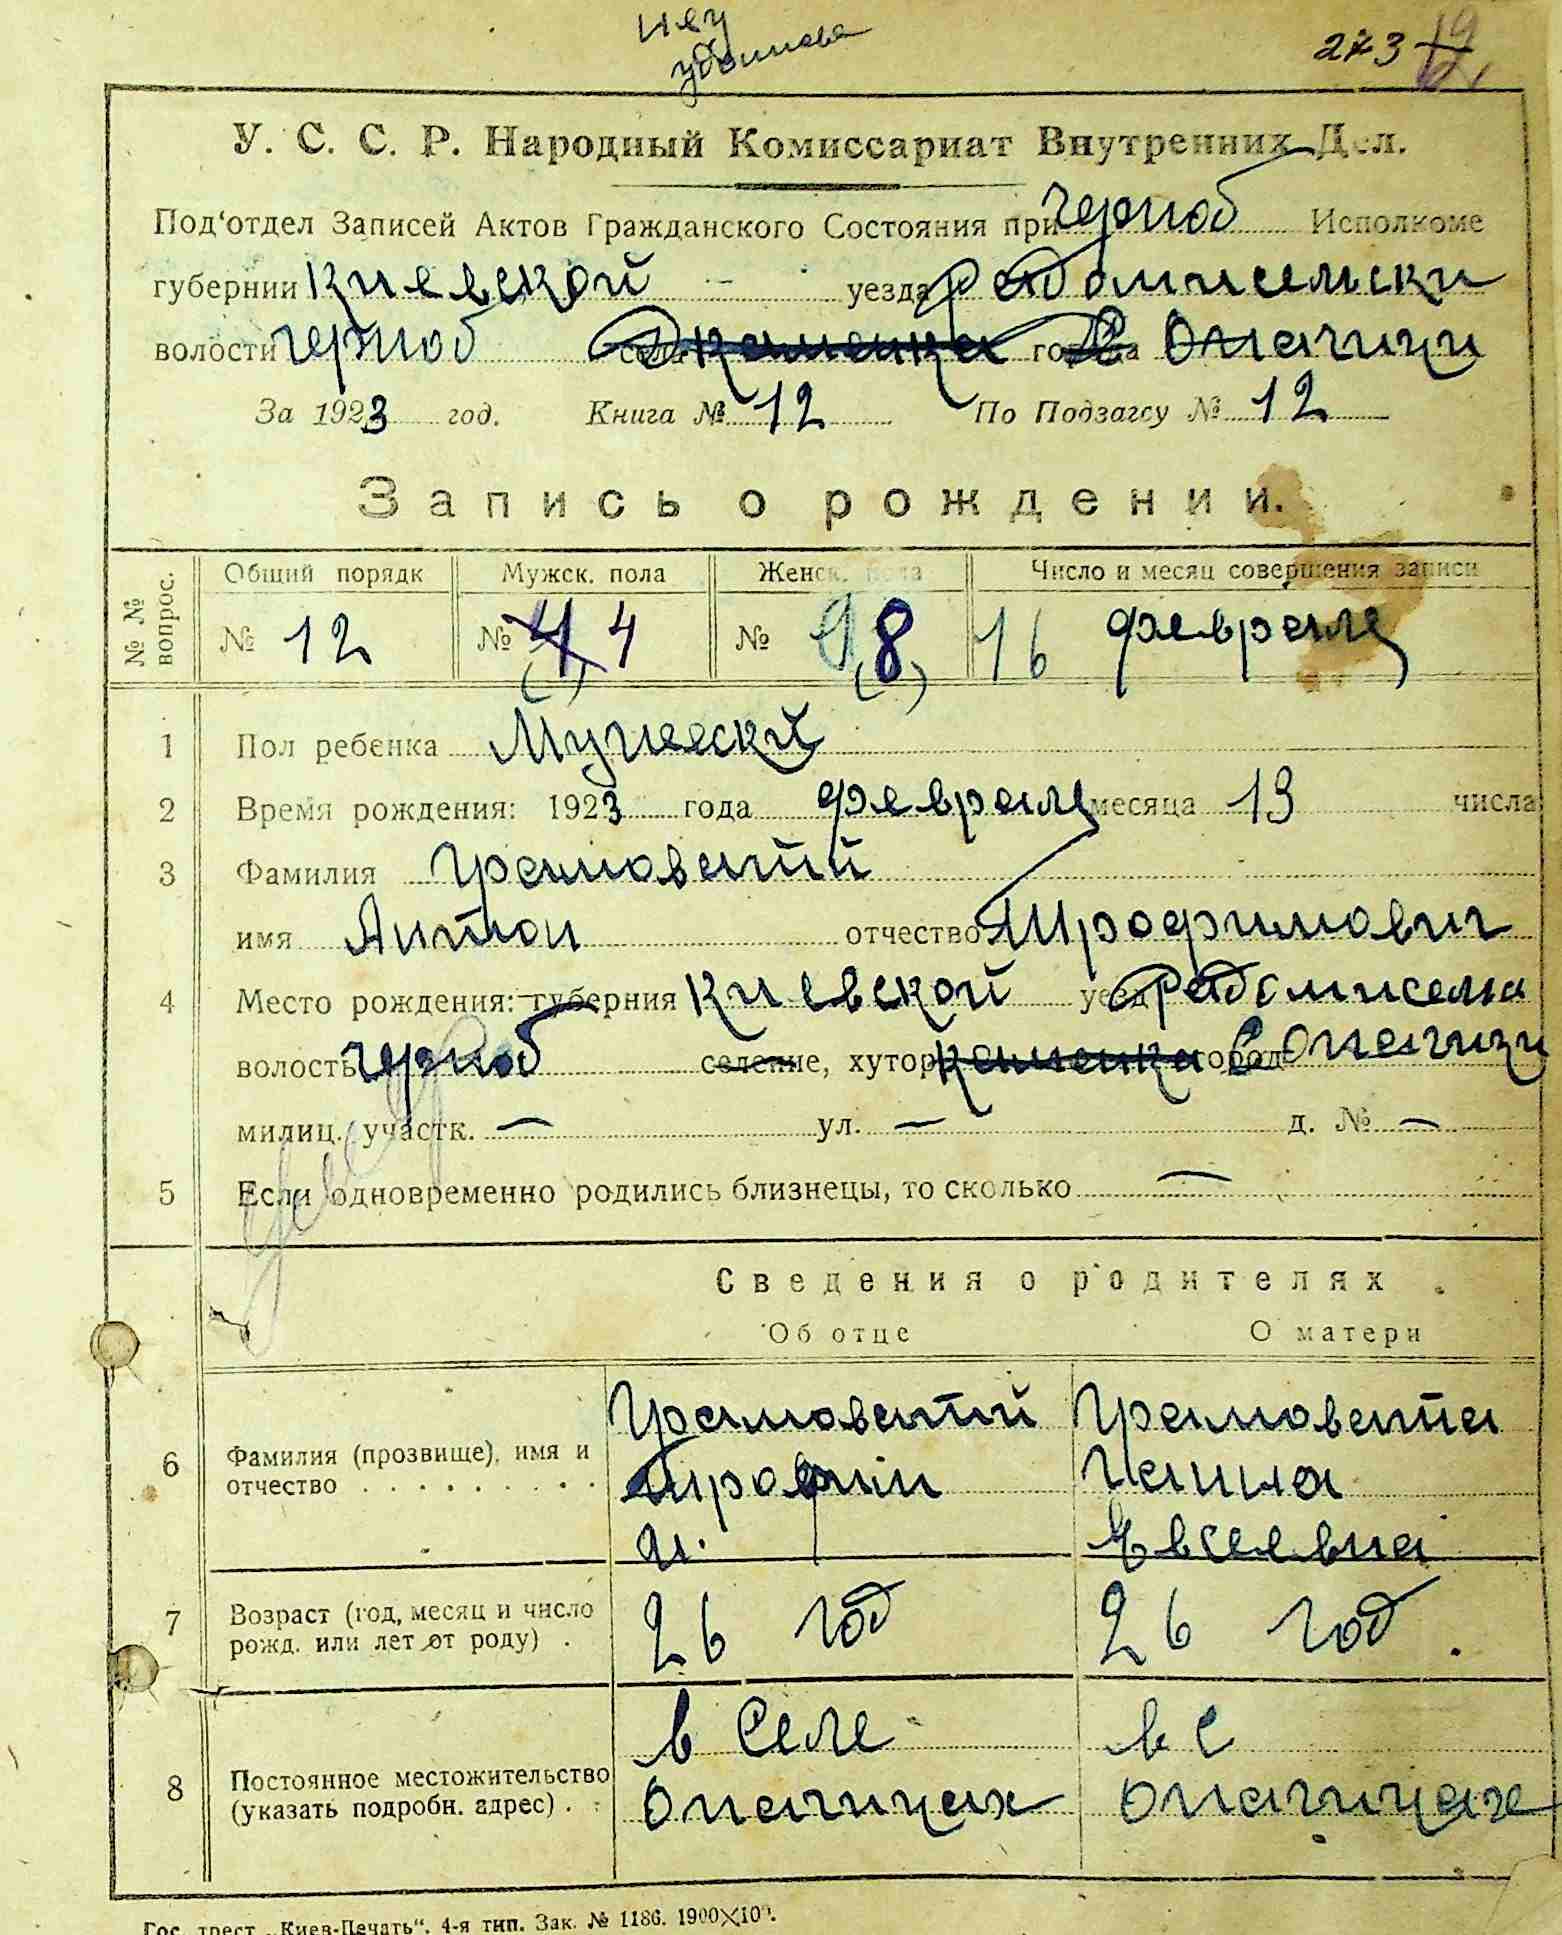 273
У. С. С. Р. Народный Комиссариат Внутренних Дел.
Под'отдел Записей Актов Гражданского Состояния при Черноб Исполкоме
губернии Киевской – уезда Радомисельски
волости Черноб села Каменка города С Опачици
За 1923 год. Книга № 12 По Подзагсу № 12
Запись о рождении.
№ № вопрос. Общий порядк Мужск. пола Женск. пола Число и месяц совершения записи
№ 12 № 4 4 № 9 8 16 февраля
1 Пол ребенка Мужеский
2 Время рождения: 1923 года февраля месяца 13 числа
3 Фамилия Храмоватий
имя Антон отчество Трофимович
4 Место рождения: губерния Киевской уезд Радомисельк
волость Черноб селение, хутор Каменка город С Опачици
милиц. участк. — ул. — д. № —
5 Если одновременно родились близнецы, то сколько —
Сведения о родителях
Об отце О матери
6 Фамилия (прозвище), имя и отчество . . . . . . . . . .
Храмоватий Храмовата
Трофим Ганна
И. Евсеевна
7 Возраст (год, месяц и число рожд. или лет от роду) .
26 год 26 год.
8 Постоянное местожительство (указать подробн. адрес) . .
в Селе в С
Опачицах Опачицах
Гос. трест „Киев-Печать“. 4-я тип. Зак. № 1186. 1900×100.